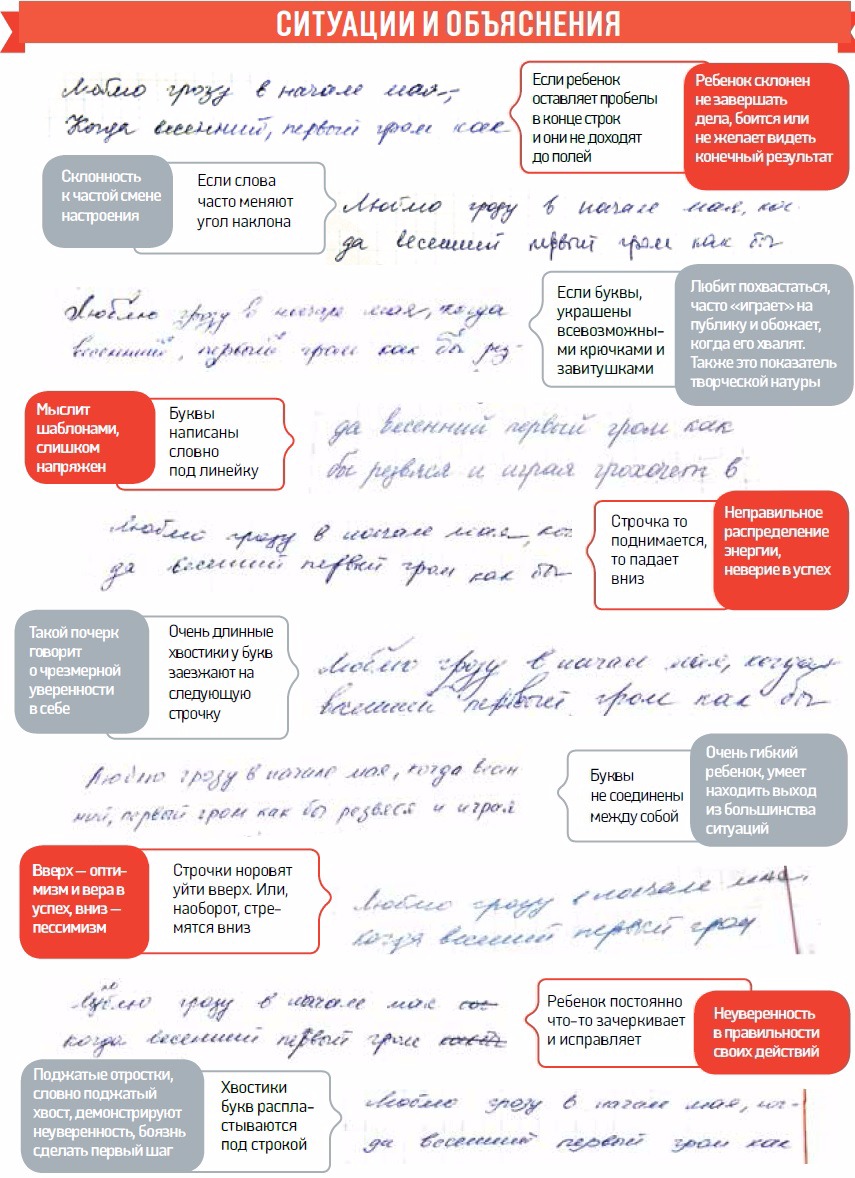 СИТУАЦИИ И ОБЪЯСНЕНИЯ
Люблю грозу в начале мая,
Когда весенний, первый гром как
Если ребенок
оставляет пробелы
в конце строк
и они не доходят
до полей
Ребенок склонен
не завершать
дела, боится или
не желает видеть
конечный результат
Склонность
к частой смене
настроения
Если слова
часто меняют
угол наклона
Люблю грозу в начале мая, ког-
да весенний первый гром как бы
Люблю грозу в начале мая, когда
весенний, первый гром как бы рез-
Если буквы,
украшены
всевозможны-
ми крючками и
завитушками
Любит похвастаться,
часто «играет» на
публику и обожает,
когда его хвалят.
Также это показатель
творческой натуры
Мыслит
шаблонами,
слишком
напряжен
Буквы
написаны
словно
под линейку
да весенний первый гром как
бы резвяся и играя грохочет в
Люблю грозу в начале мая, ког-
да весенний первый гром как бы
Строчка то
поднимается,
то падает
вниз
Неправильное
распределение
энергии,
неверие в успех
Такой почерк
говорит
о чрезмерной
уверенности
в себе
Очень длинные
хвостики у букв
заезжают на
следующую
строчку
Люблю грозу в начале мая, когда
весенний первый гром как бы
Люблю грозу в начале мая, когда весен
ний, первый гром как бы резвяся и играя
Буквы
не соединены
между собой
Очень гибкий
ребенок, умеет
находить выход
из большинства
ситуаций
Вверх — опти-
мизм и вера в
успех, вниз —
пессимизм
Строчки норовят
уйти вверх. Или,
наоборот, стре-
мятся вниз
Люблю грозу в начале мая,
когда весенний первый гром
грозу в начале мая
когда весенний первый гром
Ребенок постоянно
что-то зачеркивает
и исправляет
Неуверенность
в правильности
своих действий
Поджатые отростки,
словно поджатый
хвост, демонстрируют
неуверенность, боязнь
сделать первый шаг
Хвостики
букв распла-
стываются
под строкой
Люблю грозу в начале мая, ког-
да весенний первый гром как